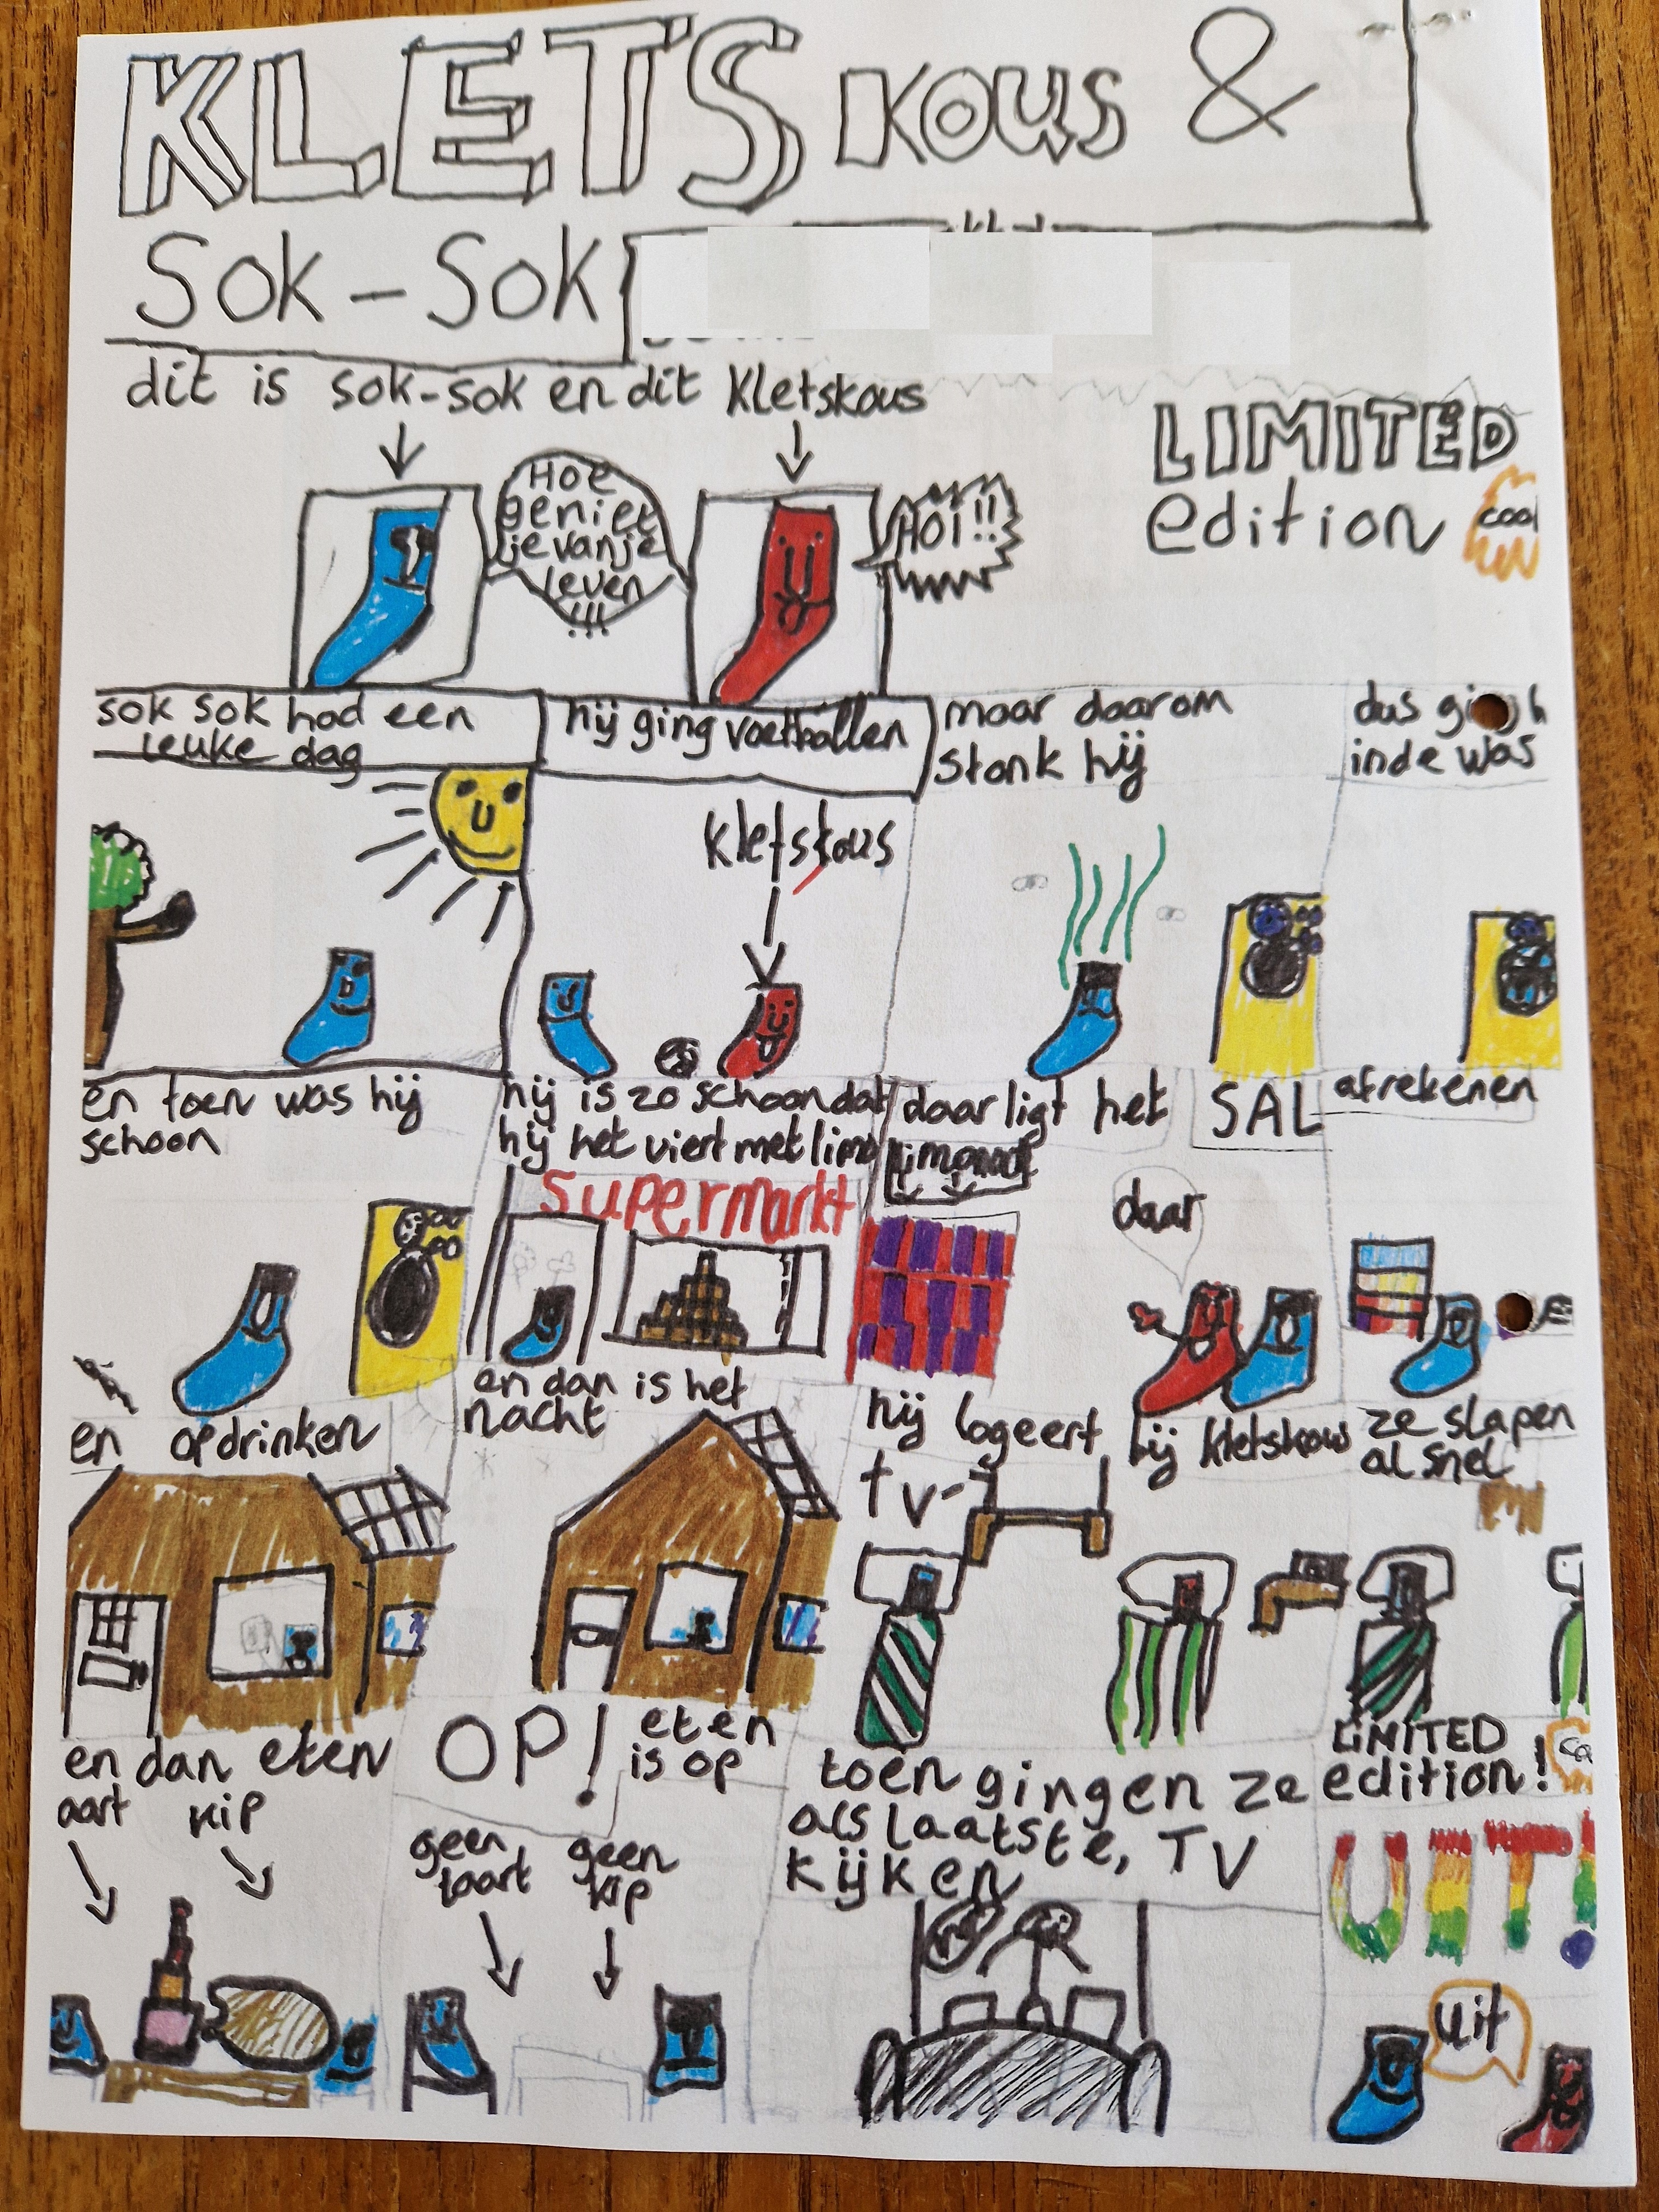 KLETSKOUS &
SOK-SOK
dit is sok-sok en dit kletskous
Hoe
geniet
je van je
leven
!!!
HOI!!
LIMITED
edition
cool
sok sok had een
leuke dag
hij ging voetballen
maar daarom
stonk hij
inde was
kletskous
en toen was hij
schoon
hij is zo schoon dat
hij het viert met limo
supermarkt
daar ligt het
limonade
daar
SAL
afrekenen
en opdrinken
en dan is het
nacht
hij logeert
bij kletskous
tv
ze slapen
al snel
en dan eten
aart kip
OP! eten
is op
geen
taart
geen
kip
toen gingen ze
als laatste, TV
kijken
LIMITED
edition!
UIT!
uit